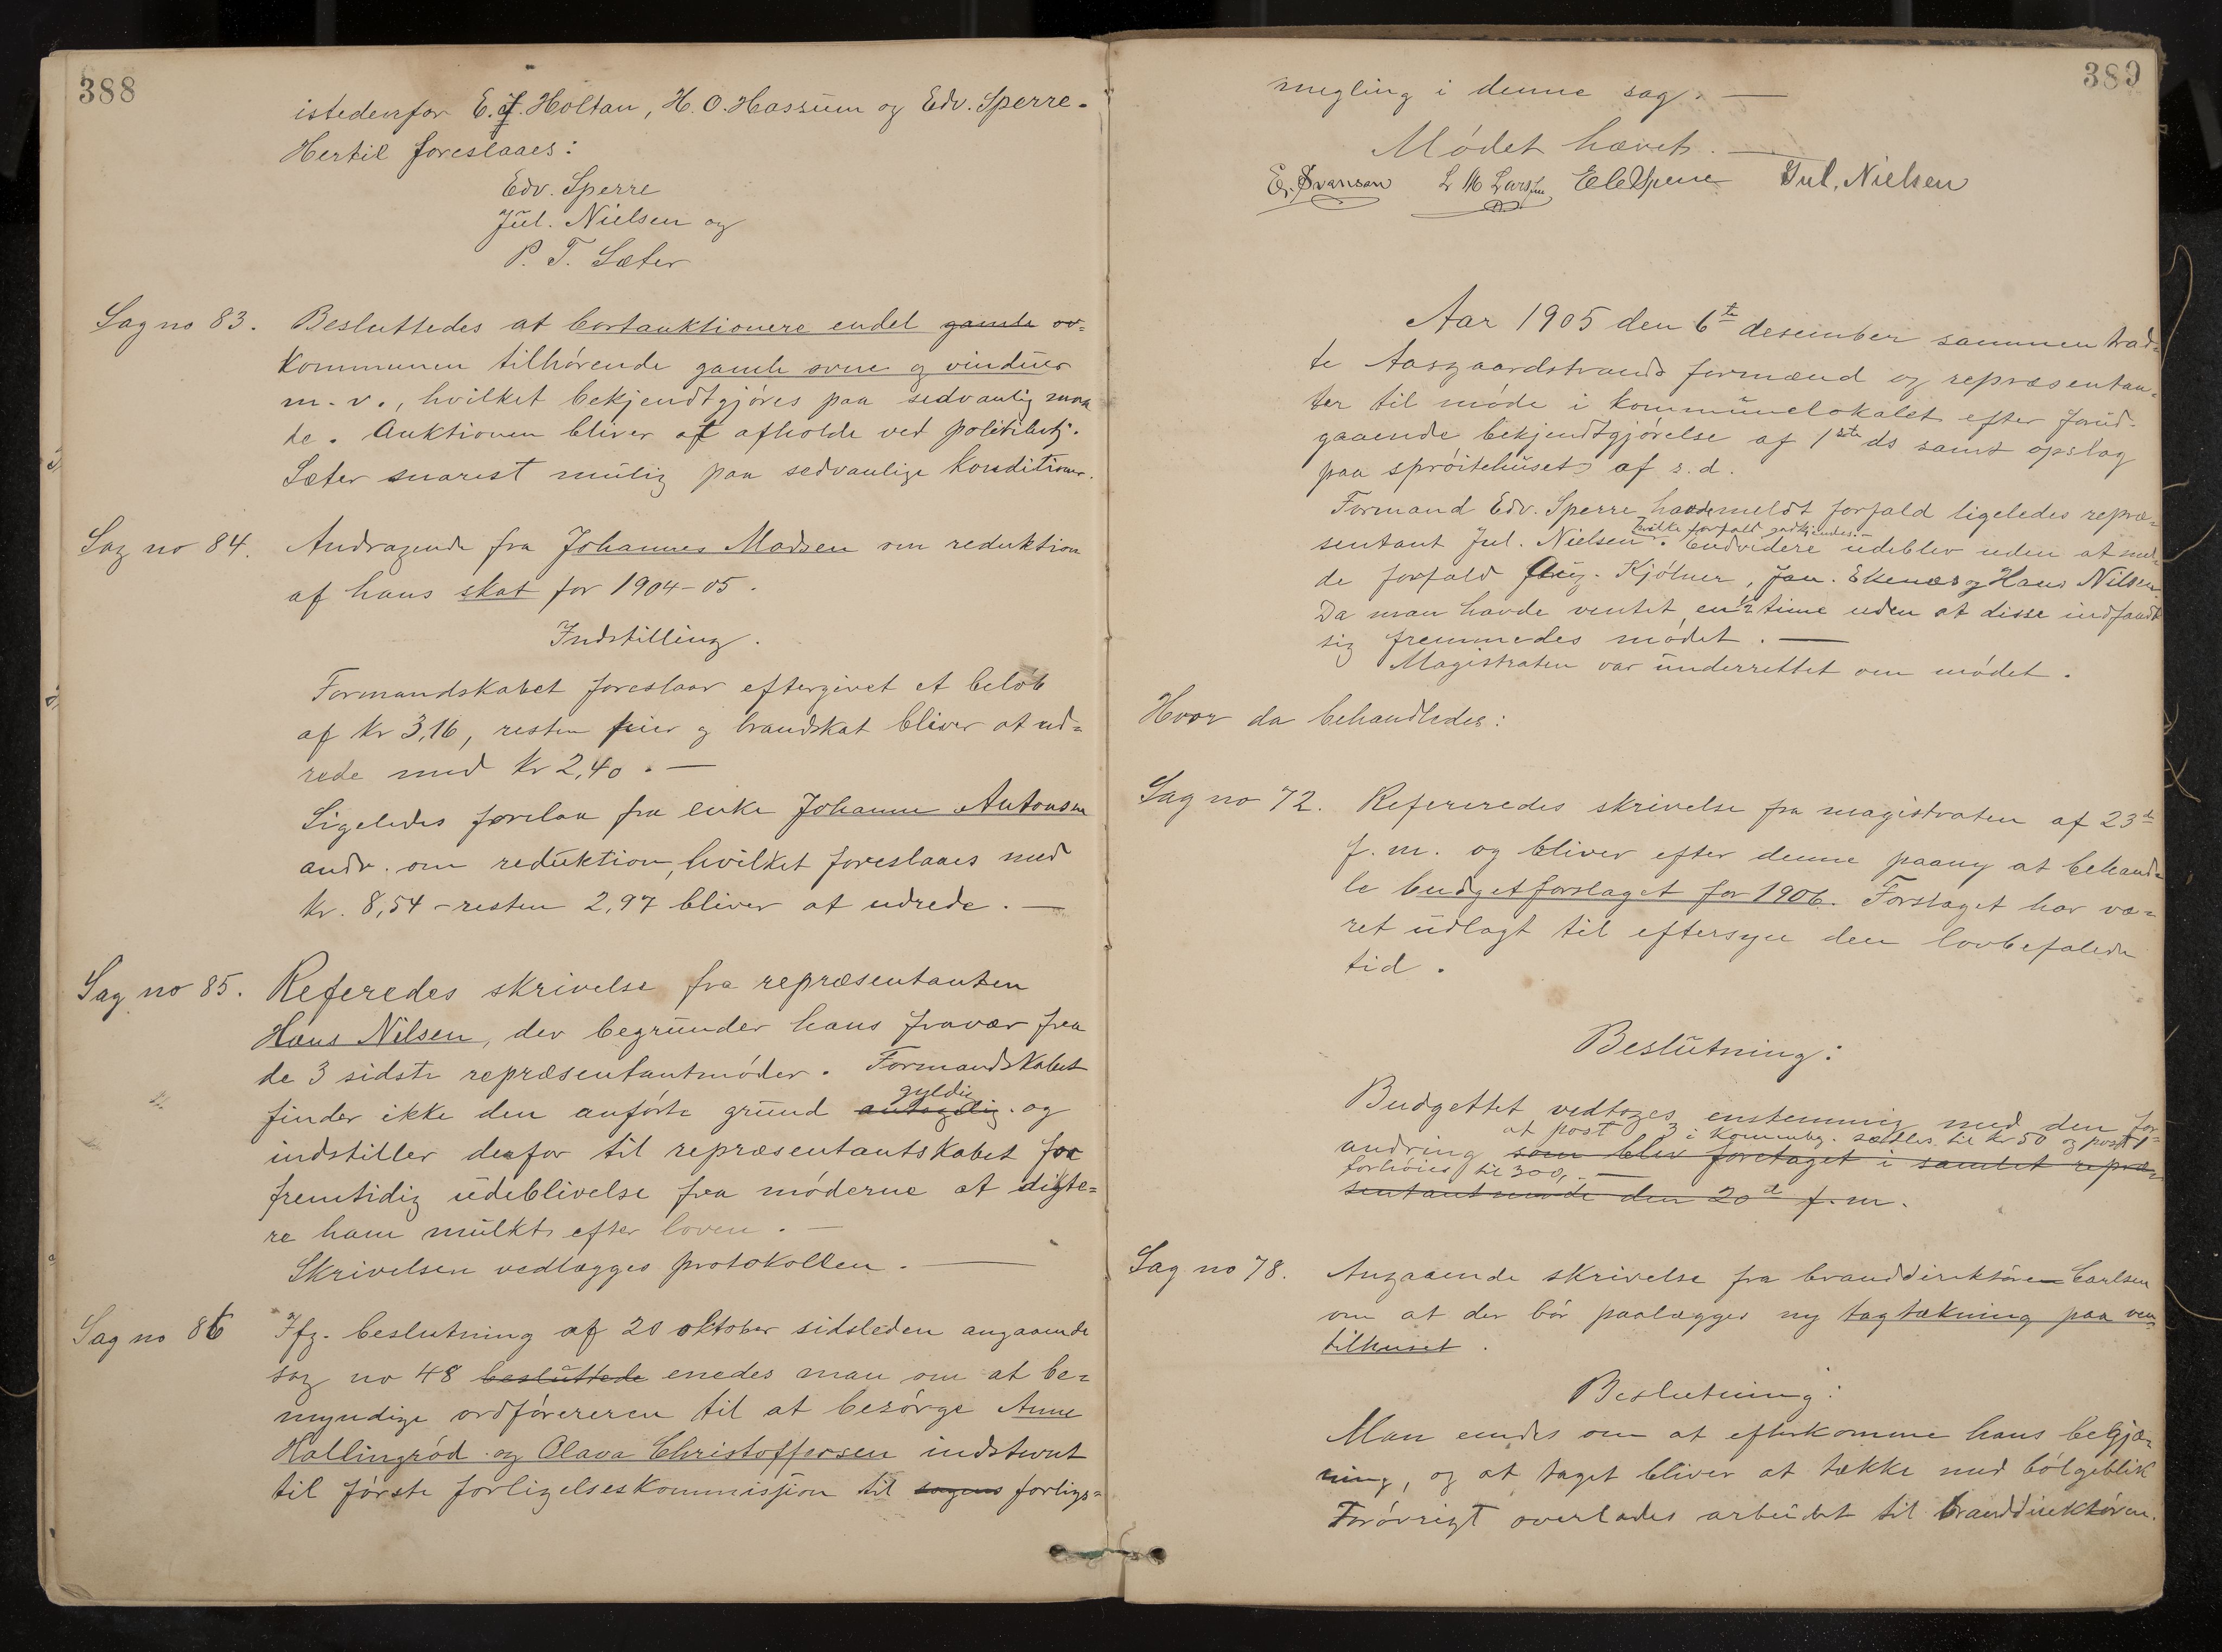 388
istedenfor E. J. Holtan, H. O. Hassum og Edv. Sperre.
Hertil foreslaaes:
Edv. Sperre
Jul. Nielsen og
P. T. Sæter
Sag no 83. Besluttedes at bortauktionere endel gamle ov=
kommunen tilhørende gamle ovne og vinduer
m. v., hvilket bekjendtgjøres paa sedvanlig maa
de. Auktionen bliver at afholde ved politibetj.
Sæter snarest mulig paa sedvanlige konditioner.
Sag no 84. Andragende fra Johannes Madsen om reduktion
af hans skat for 1904-05.
Indstilling.
Formandskabet foreslaar eftergivet et beløb
af kr 3,16, resten feier og brandskat bliver at ud=
rede med kr 2,40. —
Ligeledes forelaa fra enke Johanne Antonsen
andr. om reduktion, hvilket foreslaaes med
kr. 8,54 - resten 2,97 bliver at udrede. —
Sag no 85. Referedes skrivelse fra repræsentanten
Hans Nilsen, der begrunder hans fravær fra
de 3 sidste repræsentantmøder. Formandskabet
gyldig
finder ikke den anførte grund antagelig. og
indstiller derfor til repræsentantskabet for
fremtidig udeblivelse fra møderne at digte=
re ham mulkt efter loven. —
Skrivelsen vedlægges protokollen. —
Sag no 86 Ifg. beslutning af 20 oktober sidsleden angaaende
sag no 48 besluttede enedes man om at be=
myndige ordføreren til at besørge Anne
Hallingrød og Olava Christoffersen indstevnt
til første forligelseskommission til sagens forligs=
389
megling i denne sag. —
Mødet hævet. —
E. Svensen L M Larsen Jul. Nielsen
Aar 1905 den 6te desember sammentraad=
te Aasgaardstrands formænd og repræsentan=
ter til møde i kommunelokalet efter forud=
gaaende bekjendtgjørelse af 1ste ds samt opslag
paa sprøitehuset af s. d.
Formand Edv. Sperre havde meldt forfald ligeledes repræ=
hvilke forfald godkjendes. -
sentant Jul. Nielsen. Endvidere udeblev uden at mel=
de forfald Aug. Kjølner, Jan. Ekenæs og Hans Nilsen.
Da man havde ventet en 1/2 time uden at disse indfandt
sig fremmedes mødet. —
Magistraten var underrettet om mødet.
Hvor da behandledes:
Sag no 72. Refereredes skrivelse fra magistraten af 23de
f. m. og bliver efter denne paany at behand=
le budgetforslaget for 1906. Forslaget har væ=
ret udlagt til eftersyn den lovbefalede
tid.
Beslutning:
Budgettet vedtoges enstemmig med den for=
at post 3 i kommbg. sættes til kr 50 og post 1
andring som blev foretaget i samlet repræ=
forhøies til 300,. —
sentantmøde den 20de f. m.
Sag no 78. Angaaende skrivelse fra branddirektøren Carlsen
om at der bør paalægges ny tagtækning paa ven
tilhuset.
Beslutning:
Man enedes om at efterkomme hans begjæ=
ring, og at taget bliver at tække med bølgeblik
Forøvrigt overlades arbeidet til branddirektøren.